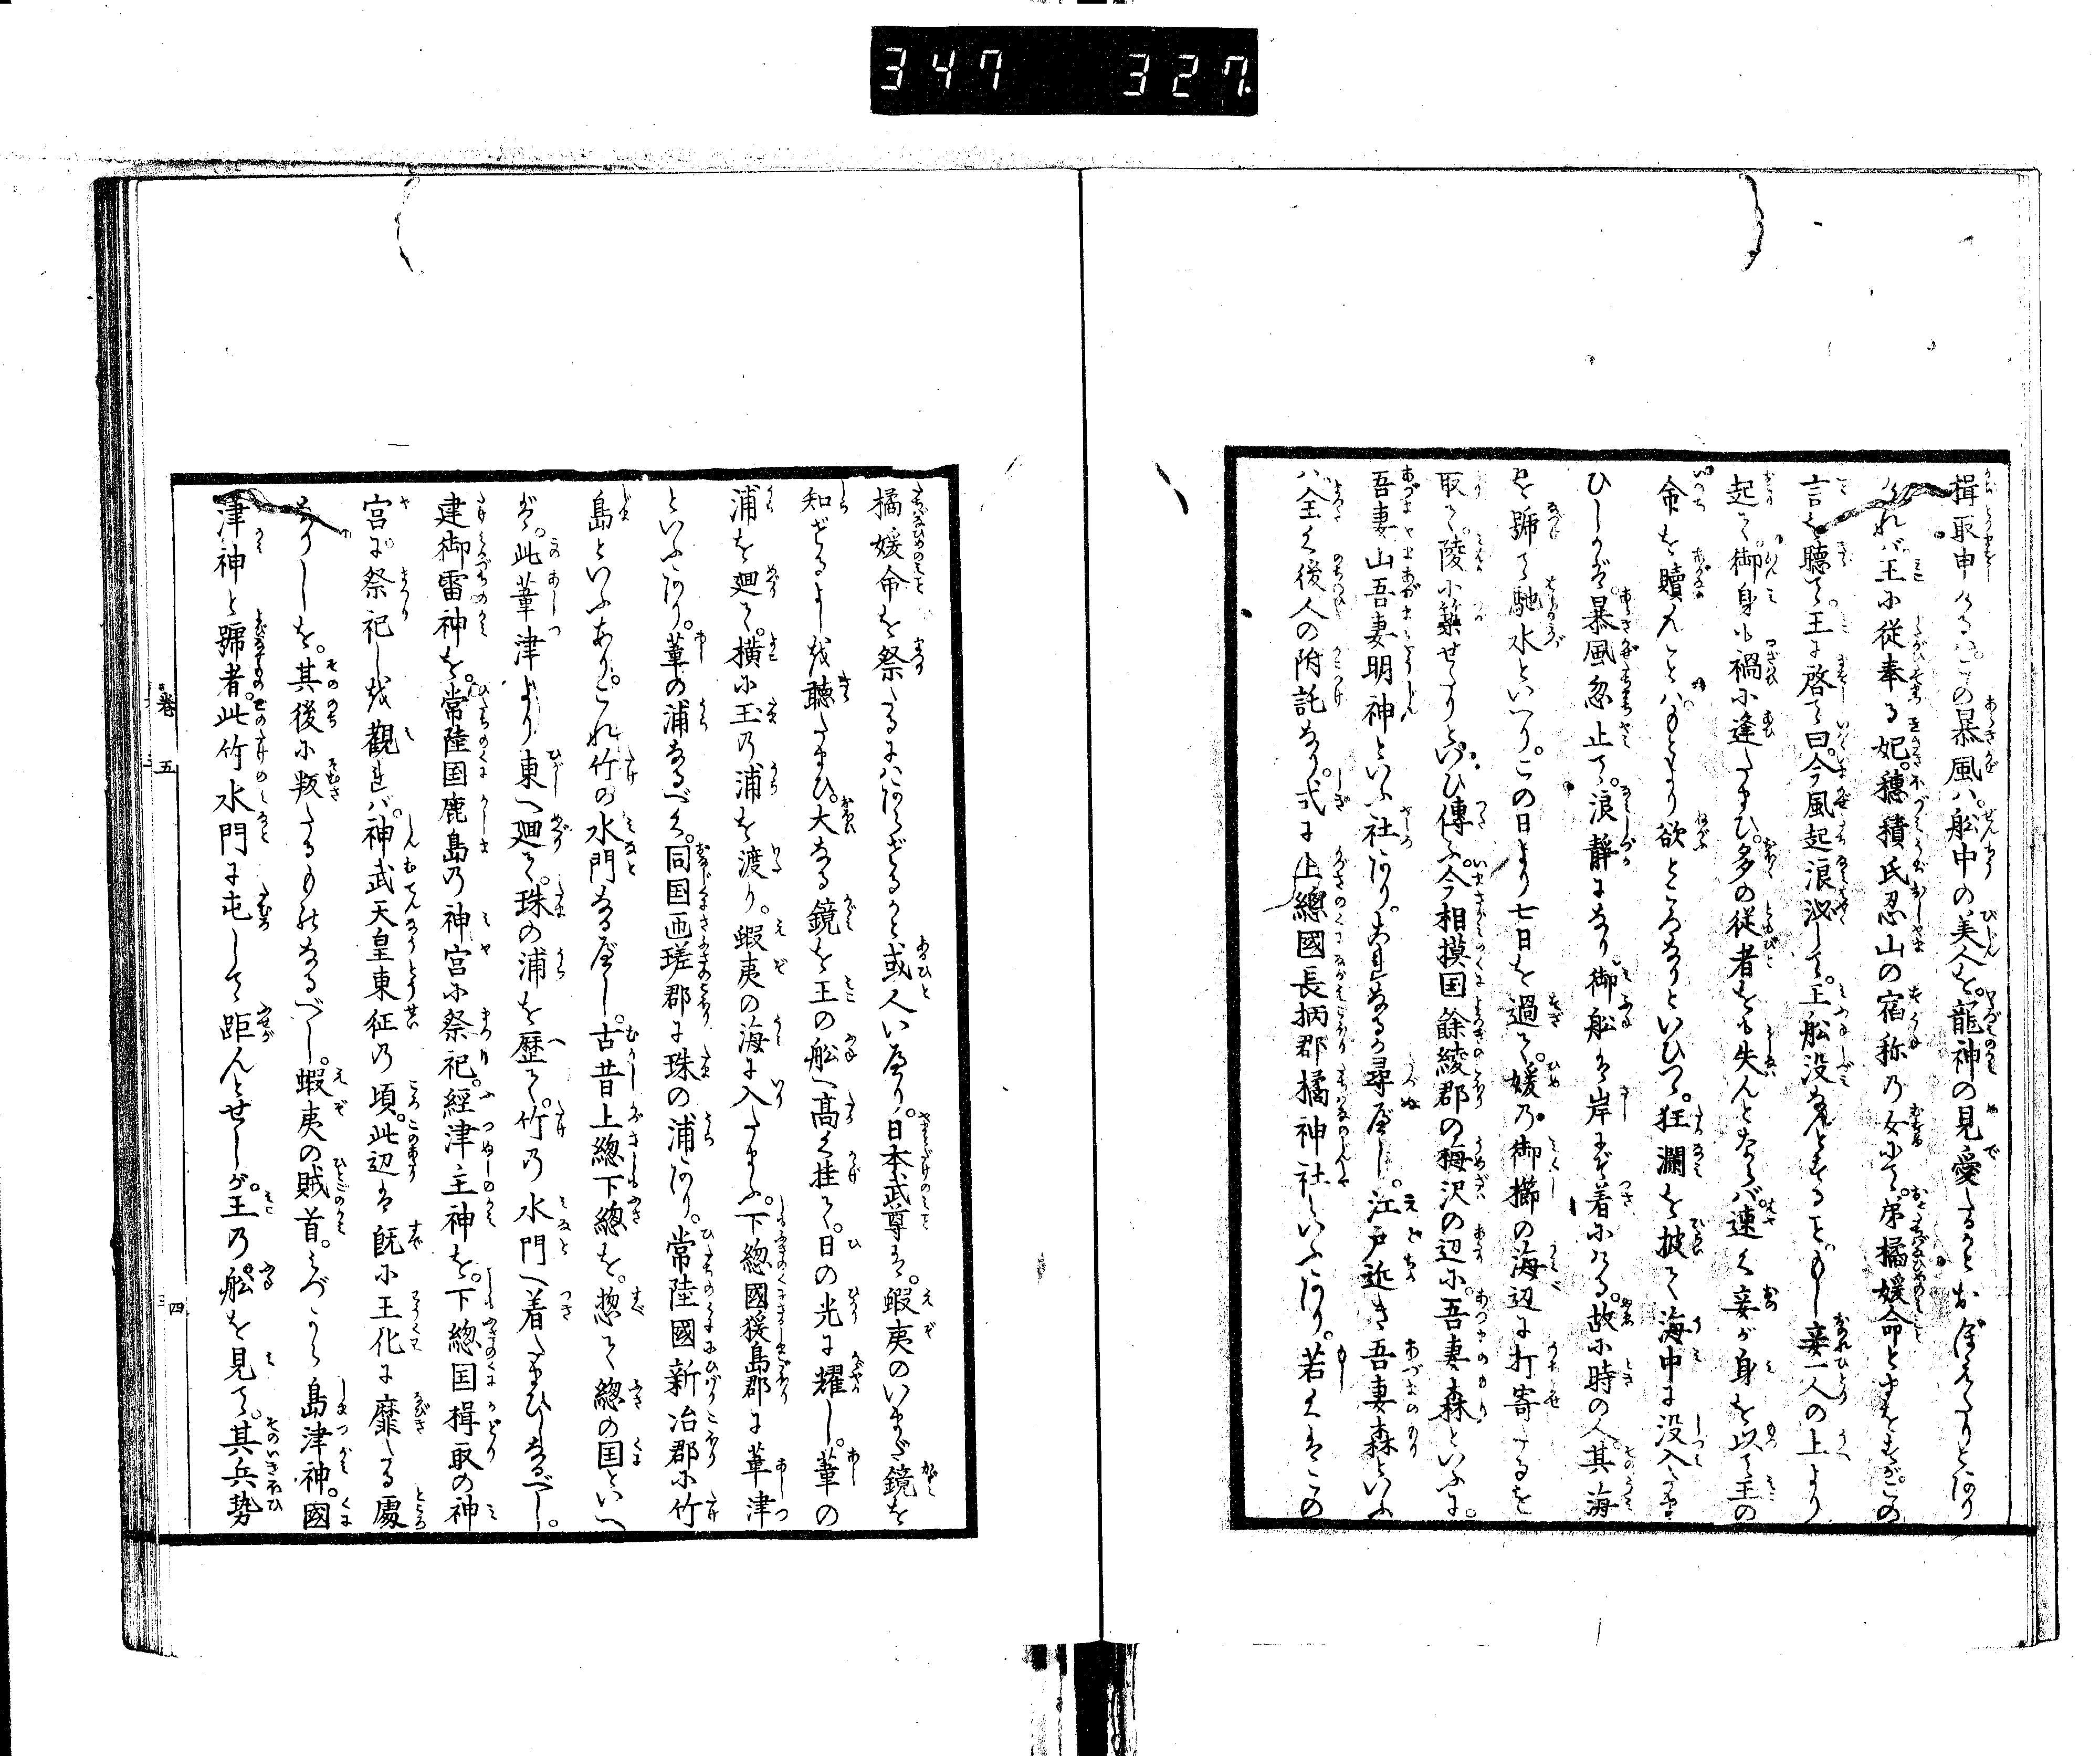 347 327.
揖取申けるハ。この暴風ハ。舩中の美人を。龍神の見愛たるかとおぼえたりとあり
けれバ。王に従奉る妃。穗積氏忍山の宿称の女にて。弟橘媛命とまをすが。この
言を聴て。王に啓て曰。今風起浪泌して。王舩没なんとすること。もし妾一人の上より
起て。御身も禍に逢たまひ。多の従者をも失んとならバ。速く妾が身を以て王の
命を贖んことハ。もとより欲ところなりといひつゝ。狂瀾を披て海中に没入たま
ひしかば。暴風忽止て。浪静になり御舩は岸にぞ着にける。故に時の人。其海
を號て馳水といへり。この日より七日を過て。媛乃御櫛の海辺に打寄たるを
取て。陵に築せたりといひ傳ふ。今相摸国餘綾郡の梅沢の辺に。吾妻森といふに。
吾妻山吾妻明神といふ社あり。古邑なるか尋べし。江戸近き吾妻森といふ
ハ全く後人の附託なり。式に上總國長柄郡橘神社といふあり。若くはこの
橘媛命を祭たるにハあらざるかと或人いへり。日本武尊は。蝦夷のいまだ鏡を
知ざるよしを聴たまひ。大なる鏡を王の舩へ高く挂て。日の光に耀し。葦の
浦を廻て。横に玉乃浦を渡り。蝦夷の海に入たまふ。下總國猨島郡に葦津
といふあり。葦の浦なるべく。同国匝瑳郡に珠の浦あり。常陸國新治郡に竹
島といふあり。これ竹の水門なるべし。古昔上総下総を。惣て総の国といへ
ば。此葦津より東へ廻て。珠の浦を歴て。竹乃水門へ着たまひしなるべし。
建御雷神を。常陸国鹿島乃神宮に祭祀。經津主神を。下総国揖取の神
宮に。祭祀しを觀れバ。神武天皇東征乃頃。此辺は既に王化に靡たる處
なりしを。其後に叛たるものなるべし。蝦夷の賊首。みづから島津神。國
津神と號者。此竹水門に屯して距んとせしが。王乃舩を見て。其兵勢
卷五
四